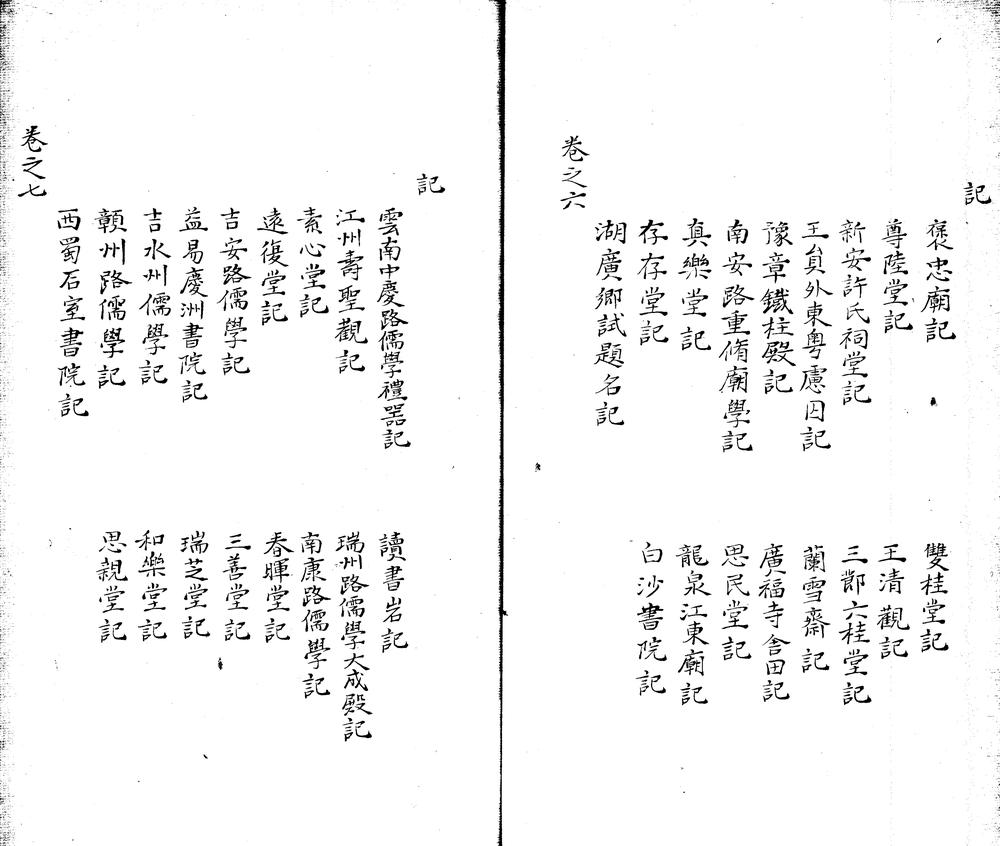 記
褒忠廟記
雙桂堂記
尊陸堂記
王清觀記
新安許氏祠堂記
三鄮六桂堂記
王貟外東粤慮囚記
蘭雪齋記
豫章鐵柱殿記
廣福寺舍田記
南安路重脩廟學記
思民堂記
真樂堂記
龍泉江東廟記
存存堂記
白沙書院記
湖廣鄉試題名記
卷之六
記
雲南中慶路儒學禮器記
讀書岩記
江州壽聖觀記
瑞州路儒學大成殿記
素心堂記
南康路儒學記
遠復堂記
春暉堂記
吉安路儒學記
三善堂記
益易慶洲書院記
瑞芝堂記
吉水州儒學記
和樂堂記
贛州路儒學記
思親堂記
西蜀石室書院記
卷之七